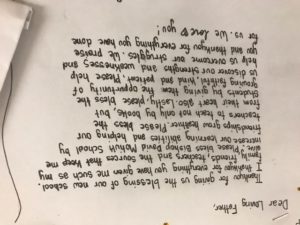 Dear Loving Father,
Thankyou for giving us the blessing of our new school.
I thankyou for everything you have given me such as my
family, friends, teachers and the sources that keep me
alive. Please bless Bishop David McHugh School by
increase our learning abilities and helping our
friendships grow healthier. Please bless the
teachers to teach not only by books, but
from their heart also. Lastly, please bless the
students by giving them the opportunity of
growing faithful, kind and patient. Please help
us discover our strengths and weaknesses and
help us overcome our struggles. We praise
you and thankyou for everything you have done
for us. We love
you!